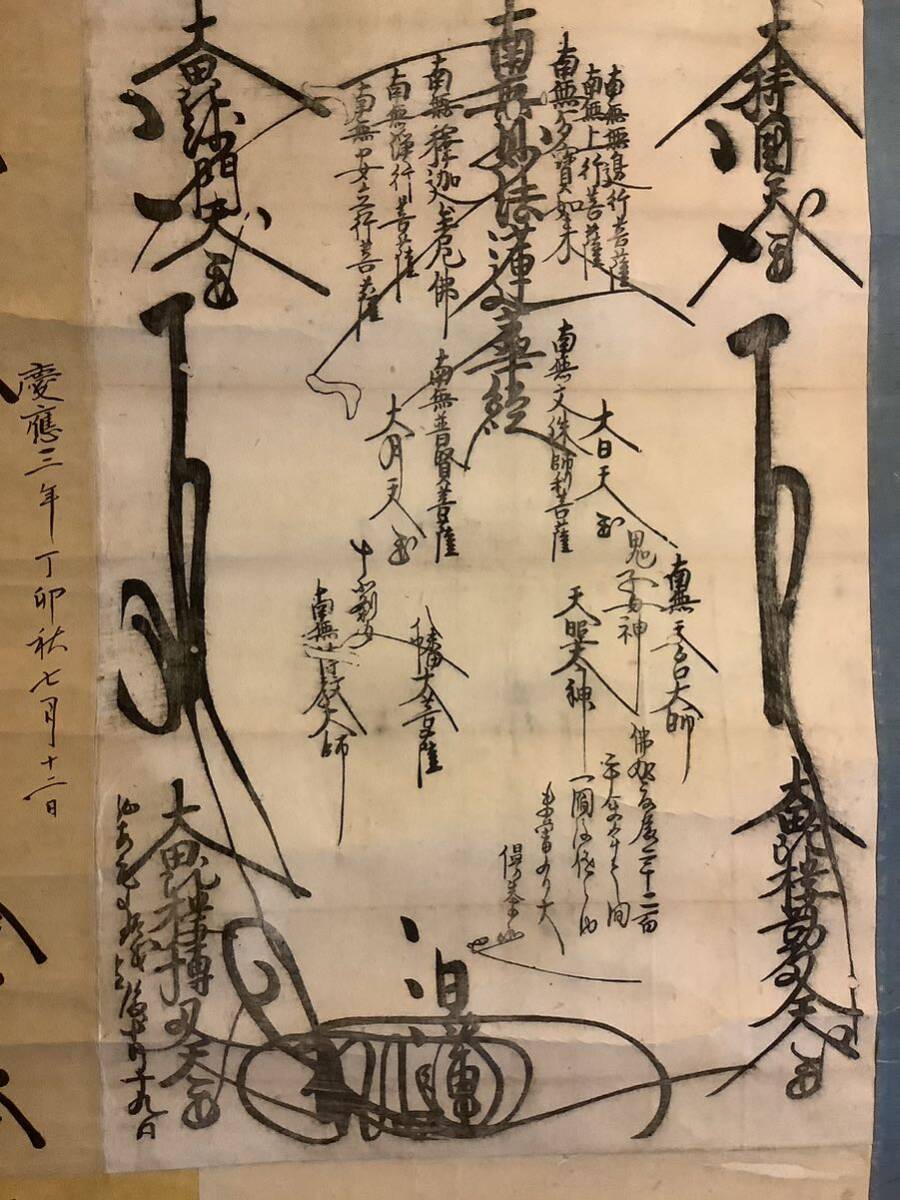 大持國天王
南無無邊行菩薩
南無上行菩薩
南無多寶如来
南無妙法蓮華経
南無釋迦牟尼佛
南無浄行菩薩
南無安立行菩薩
大毘沙門天王
南無文殊師利菩薩
大日天王
鬼子母神
南無天台大師
南無普賢菩薩
大月天王
十羅刹女
南無傳教大師
天照太神
八幡大菩薩
佛滅度後二千二百
三十余年之間
一閻浮提之内
未曾有之大
漫荼羅也
大毘楼勒叉天王
大毘楼博叉天王
日蓮
月十九日
慶應三年丁卯秋七月十二日